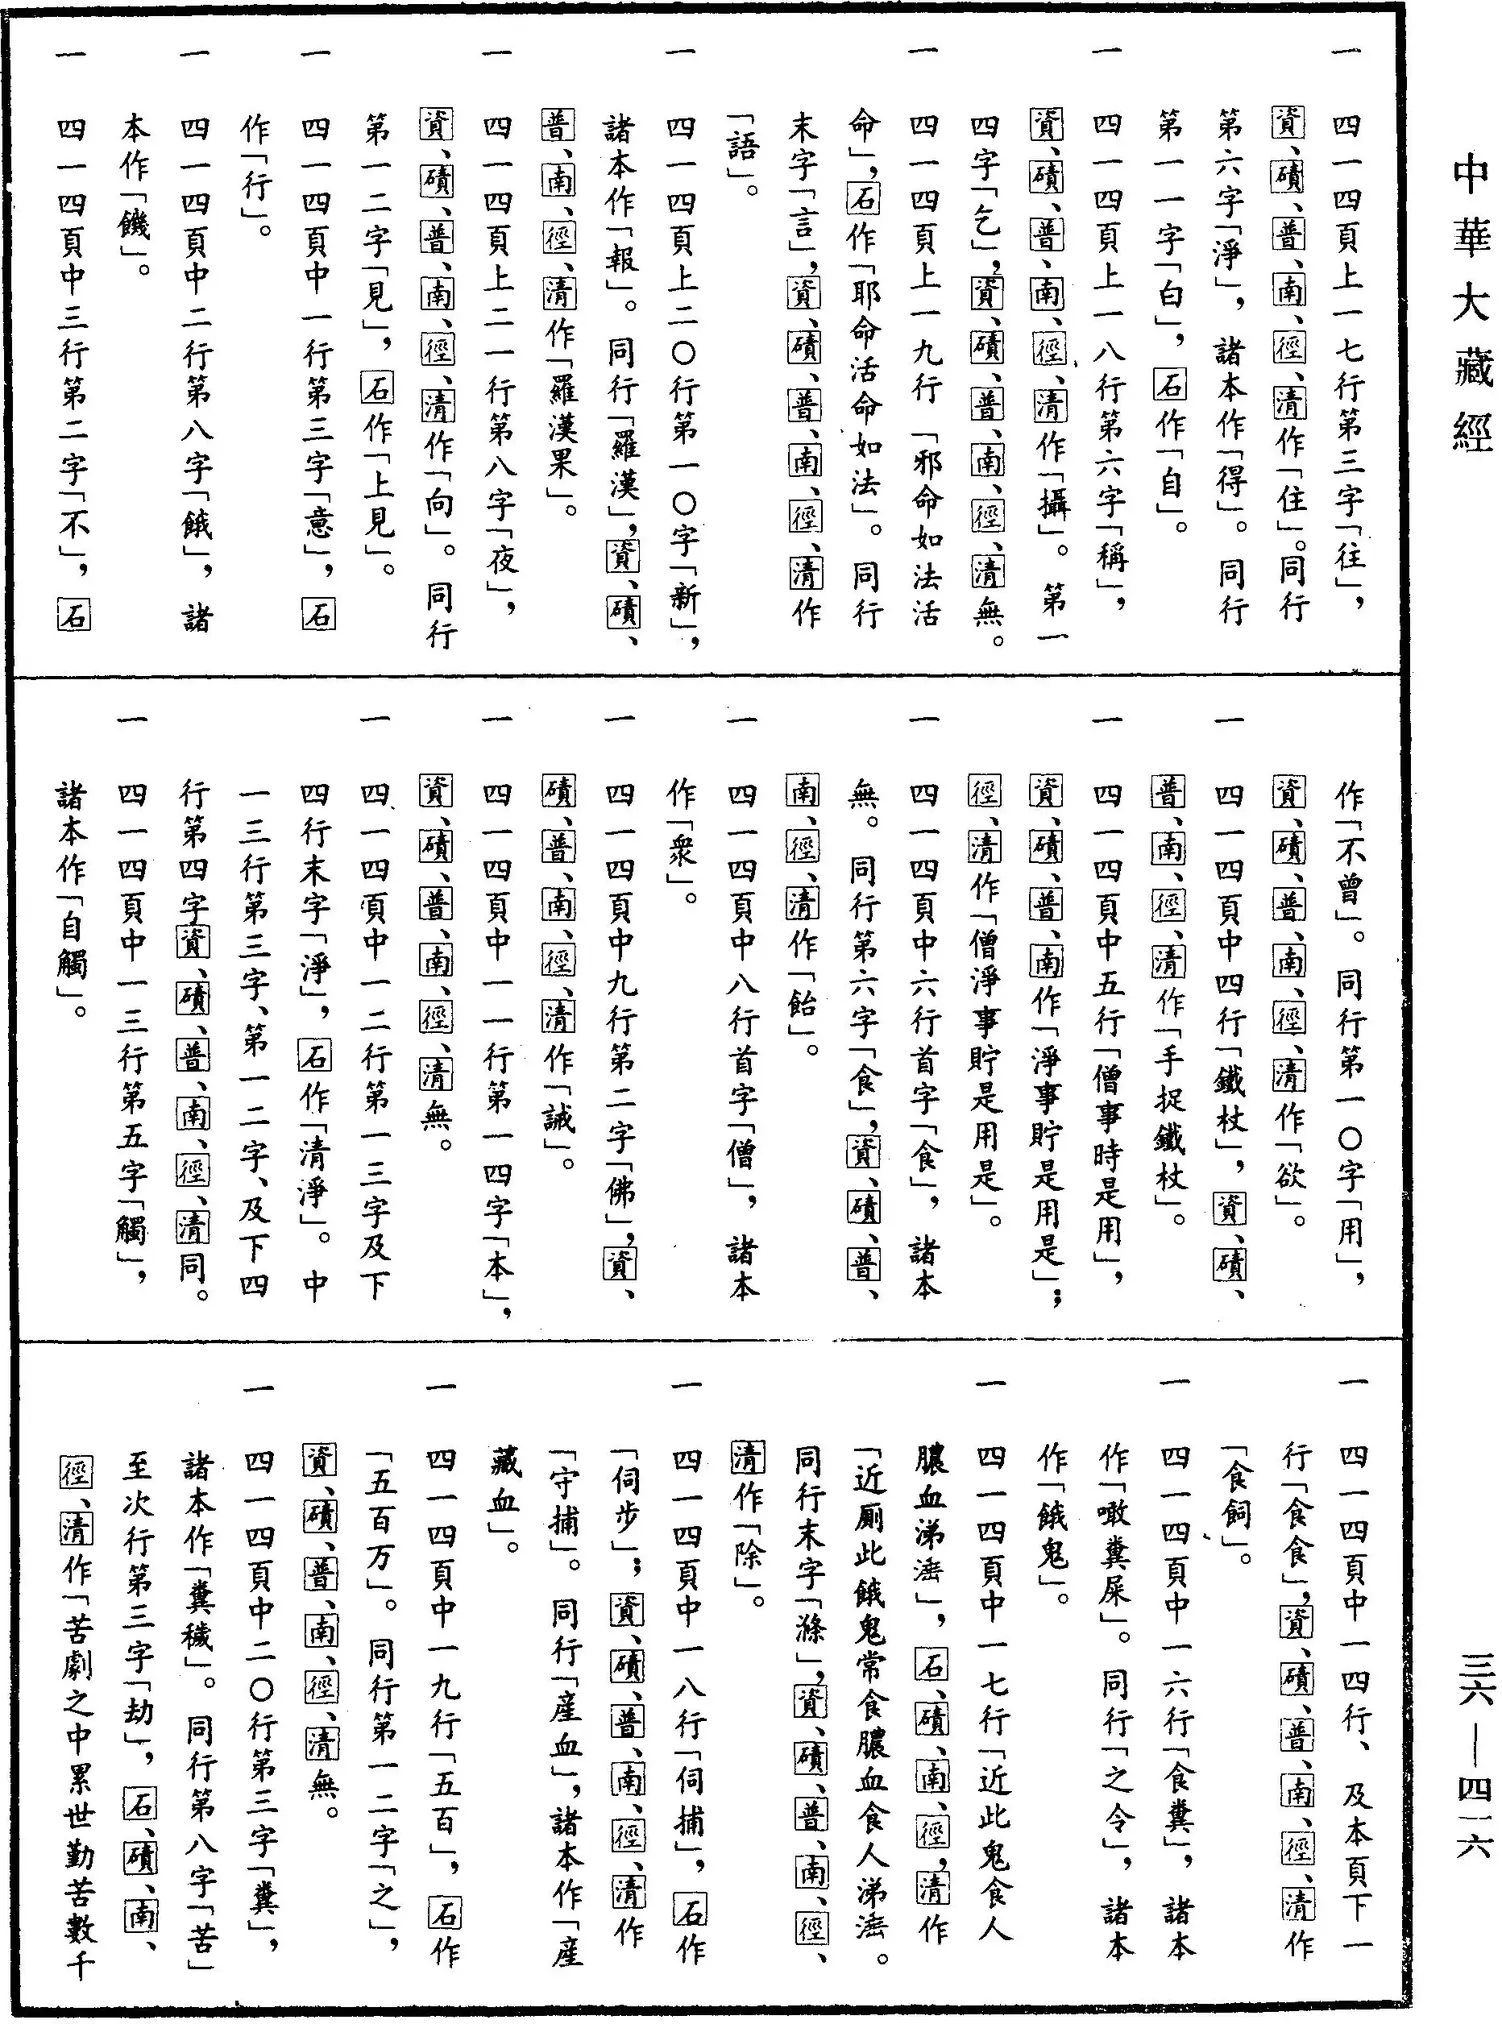 中華大藏經
一　四一四頁上一七行第三字「往」，
資、磧、普、南、徑、清作「住」。同行
第六字「淨」，諸本作「得」。同行
第一一字「白」，石作「自」。
一　四一四頁上一八行第六字「稱」，
資、磧、普、南、徑、清作「攝」。第一
四字「乞」，資、磧、普、南、徑、清無。
一　四一四頁上一九行「邪命如法活
命」，石作「耶命活命如法」。同行
末字「言」，資、磧、普、南、徑、清作
「語」。
一　四一四頁上二〇行第一〇字「新」，
諸本作「報」。同行「羅漢」，資、磧、
普、南、徑、清作「羅漢果」。
一　四一四頁上二一行第八字「夜」，
資、磧、普、南、徑、清作「向」。同行
第一二字「見」，石作「上見」。
一　四一四頁中一行第三字「意」，石
作「行」。
一　四一四頁中二行第八字「餓」，諸
本作「饑」。
一　四一四頁中三行第二字「不」，石
作「不曾」。同行第一〇字「用」，
資、磧、普、南、徑、清作「欲」。
一　四一四頁中四行「鐵杖」，資、磧、
普、南、徑、清作「手捉鐵杖」。
一　四一四頁中五行「僧事時是用」，
資、磧、普、南作「淨事貯是用是」；
徑、清作「僧淨事貯是用是」。
一　四一四頁中六行首字「食」，諸本
無。同行第六字「食」，資、磧、普、
南、徑、清作「飴」。
一　四一四頁中八行首字「僧」，諸本
作「衆」。
一　四一四頁中九行第二字「佛」，資、
磧、普、南、徑、清作「誡」。
一　四一四頁中一一行第一四字「本」，
資、磧、普、南、徑、清無。
一　四一四頁中一二行第一三字及下
四行末字「淨」，石作「清淨」。中
一三行第三字、第一二字、及下四
行第四字資、磧、普、南、徑、清同。
一　四一四頁中一三行第五字「觸」，
諸本作「自觸」。
一　四一四頁中一四行、及本頁下一
行「食食」，資、磧、普、南、徑、清作
「食飼」。
一　四一四頁中一六行「食糞」，諸本
作「噉糞屎」。同行「之令」，諸本
作「餓鬼」。
一　四一四頁中一七行「近此鬼食人
膿血涕洟」，石、磧、南、徑，清作
「近厠此餓鬼常食膿血食人涕洟。
同行末字「滌」，資、磧、普、南、徑、
清作「除」。
一　四一四頁中一八行「伺捕」，石作
「伺步」；資、磧、普、南、徑、清作
「守捕」。同行「産血」，諸本作「産
藏血」。
一　四一四頁中一九行「五百」，石作
「五百万」。同行第一二字「之」，
資、磧、普、南、徑、清無。
一　四一四頁中二〇行第三字「糞」，
諸本作「糞穢」。同行第八字「苦」
至次行第三字「劫」，石、磧、南、
徑、清作「苦劇之中累世勤苦數千
三六—四一六